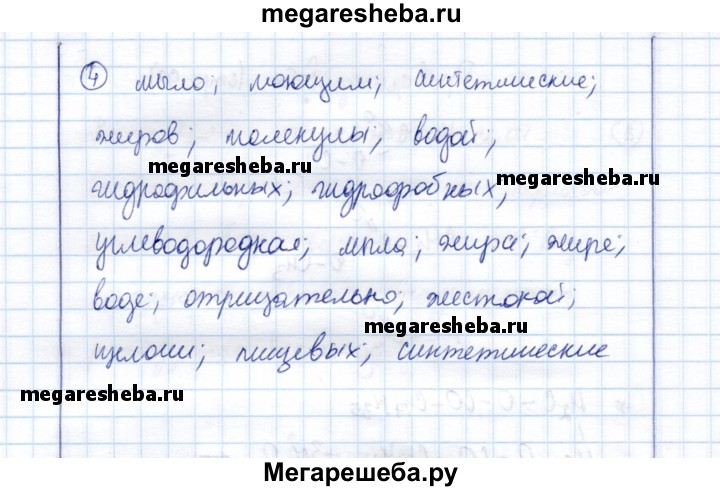 megaresheba.ru
4 мыло; моющим; синтетические;
жиров; молекулы; водой;
megaresheba.ru
megaresheba.ru
гидрофильных; гидрофобных;
углеводородная; мыла; жира; жире;
воде; отрицательно; жестокой;
megaresheba.ru
щелочи; пищевых; синтетические
megaresheba.ru
megaresheba.ru
Мегарешеба.ру